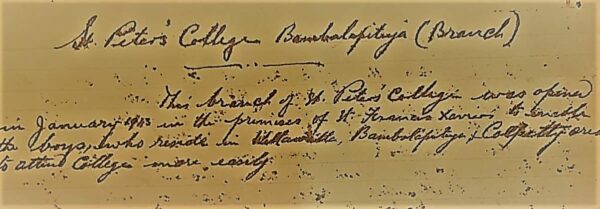 St. Peter's College Bambalapitiya (Branch)
This branch of St. Peter's College was opened
in January 1943 in the premises of St. Francis Xavier's to enable
the boys, who reside in Wellawatta, Bambalapitiya, Colpetty area
to attend College more easily.